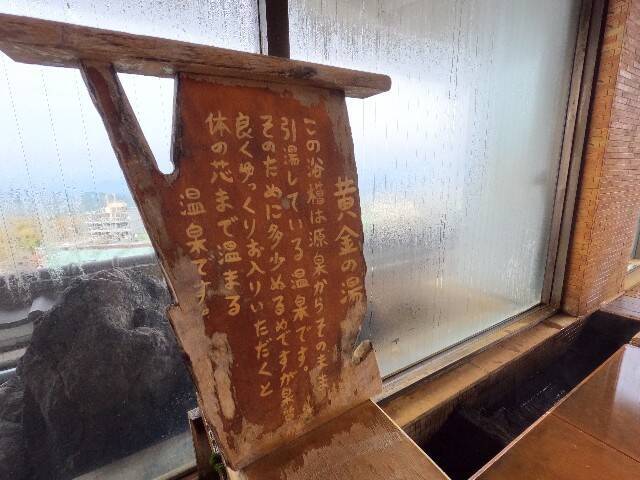 黄金の湯
この浴槽は源泉からそのまま
引湯している温泉です。
そのために多少ぬるめですが泉質
良くゆっくりお入りいただくと
体の芯まで温まる
温泉です。